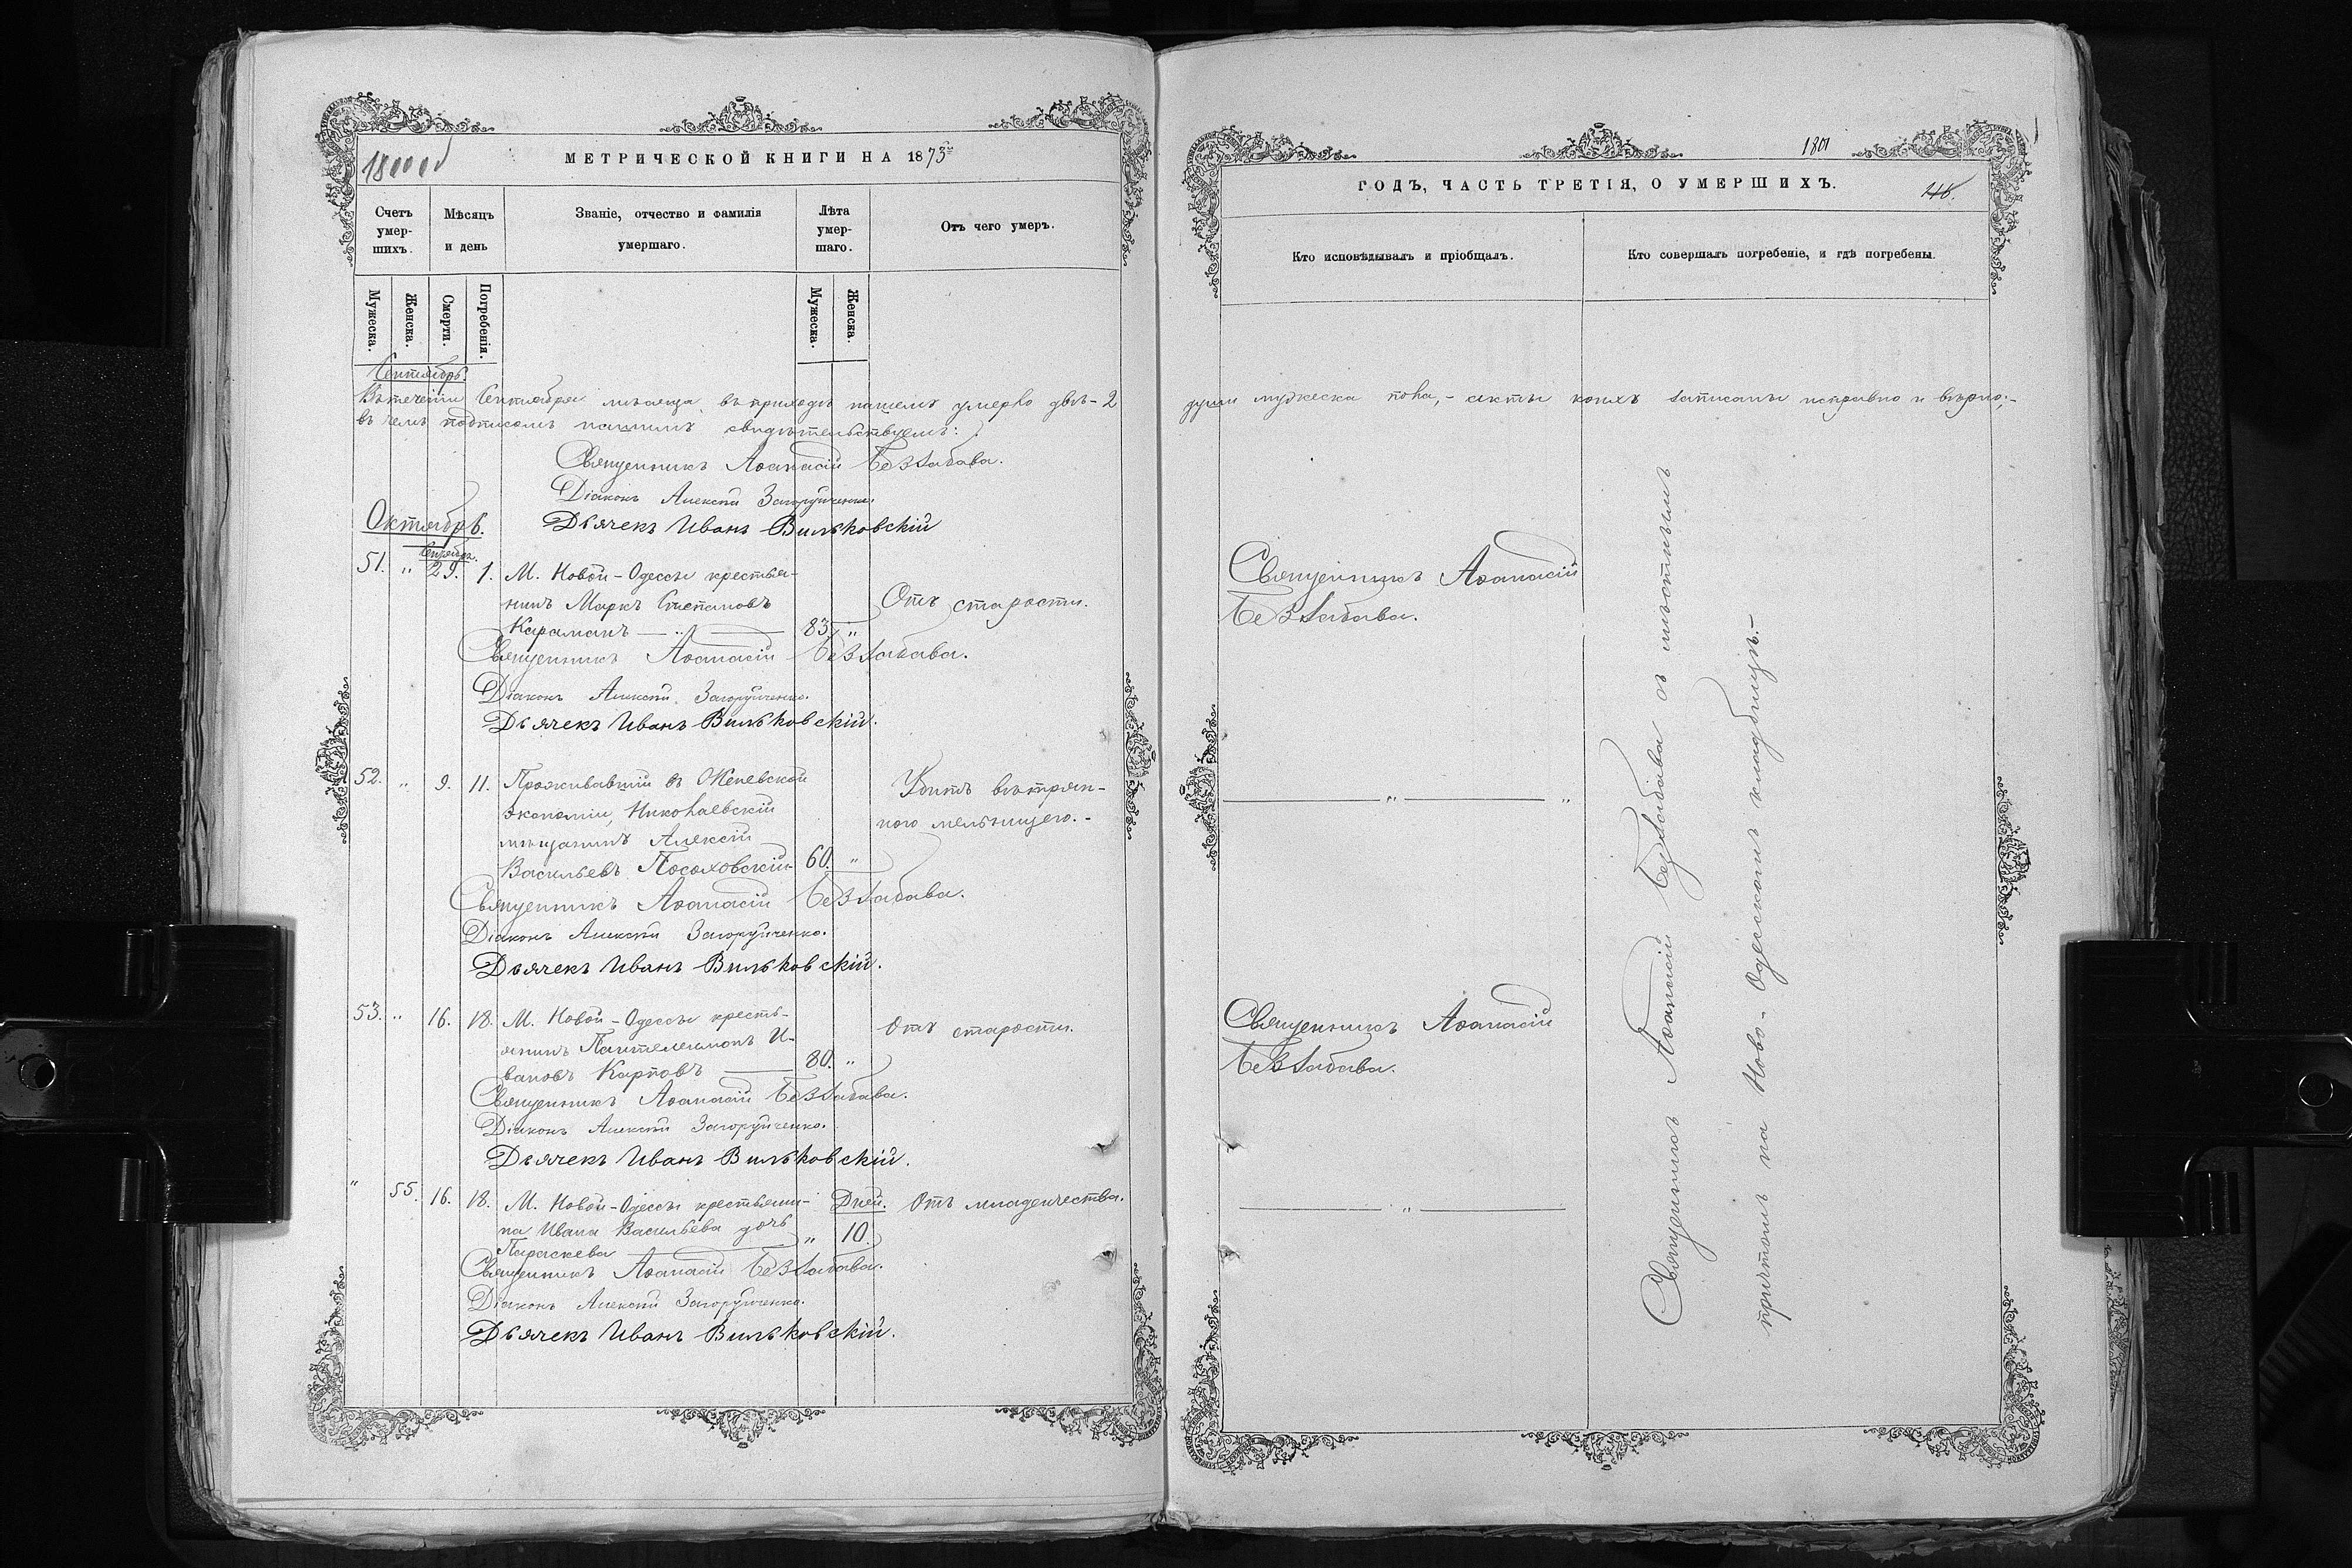 МЕТРИЧЕСКОЙ КНИГИ НА 1873
Счетъ умер-шихъ.
Мѣсяцъ и день
Званіе, отчество и фамилія умершаго.
Лѣта умер-шаго.
Отъ чего умеръ.
Мужеска.
Женска.
Смерти.
Погребенія.
Мужеска.
Женска.
Сентябрь.
Въ теченіи Сентября мѣсяца въ приходѣ нашемъ умерло двѣ - 2
въ чемъ подписомъ нашимъ свидѣтельствуемъ:
Священникъ Аѳанасій Беззабава.
Діаконъ Алексѣй Загоруйченко.
Дьячекъ Иванъ Вильковскій
Октябрь.
Сентября.
51. " 29. 1. М. Новой-Одессы крестья-
нинъ Маркъ Степановъ
Караманъ — " — 83. "
Отъ старости.
Священникъ Аѳанасій Беззабава.
Діаконъ Алексѣй Загоруйченко.
Дьячекъ Иванъ Вильковскій.
52. " 9. 11. Проживавшій въ
экономіи, Николаевскій
мѣщанинъ Алексій
Васильевъ Посоховскій 60. "
Убитъ вѣтрян-
ною мельницею.-
Священникъ Аѳанасій Беззабава.
Діаконъ Алексѣй Загоруйченко.
Дьячекъ Иванъ Вильковскій.
53. " 16. 18. М. Новой-Одессы кресть-
янинъ Пантелеимонъ И-
вановъ Карповъ — 80. "
Отъ старости.
Священникъ Аѳанасій Беззабава.
Діаконъ Алексѣй Загоруйченко.
Дьячекъ Иванъ Вильковскій.
" 55. 16. 18. М. Новой-Одессы крестьяни-
на Ивана Васильева дочь
Параскева " Дней. 10.
Отъ младенчества.
Священникъ Аѳанасій Беззабава.
Діаконъ Алексѣй Загоруйченко.
Дьячекъ Иванъ Вильковскій.
180
ГОДЪ, ЧАСТЬ ТРЕТІЯ, О УМЕРШИХЪ.
Кто исповѣдывалъ и пріобщалъ.
Кто совершалъ погребеніе, и гдѣ погребены.
души мужеска пола,- акты коихъ записаны исправно и вѣрно;-
Священникъ Аѳанасій
Беззабава.
— " — "
Священникъ Аѳанасій
Беззабава.
— " —
Священникъ Аѳанасій Беззабава съ мѣстнымъ
причтомъ на Ново-Одесскомъ кладбищѣ.-